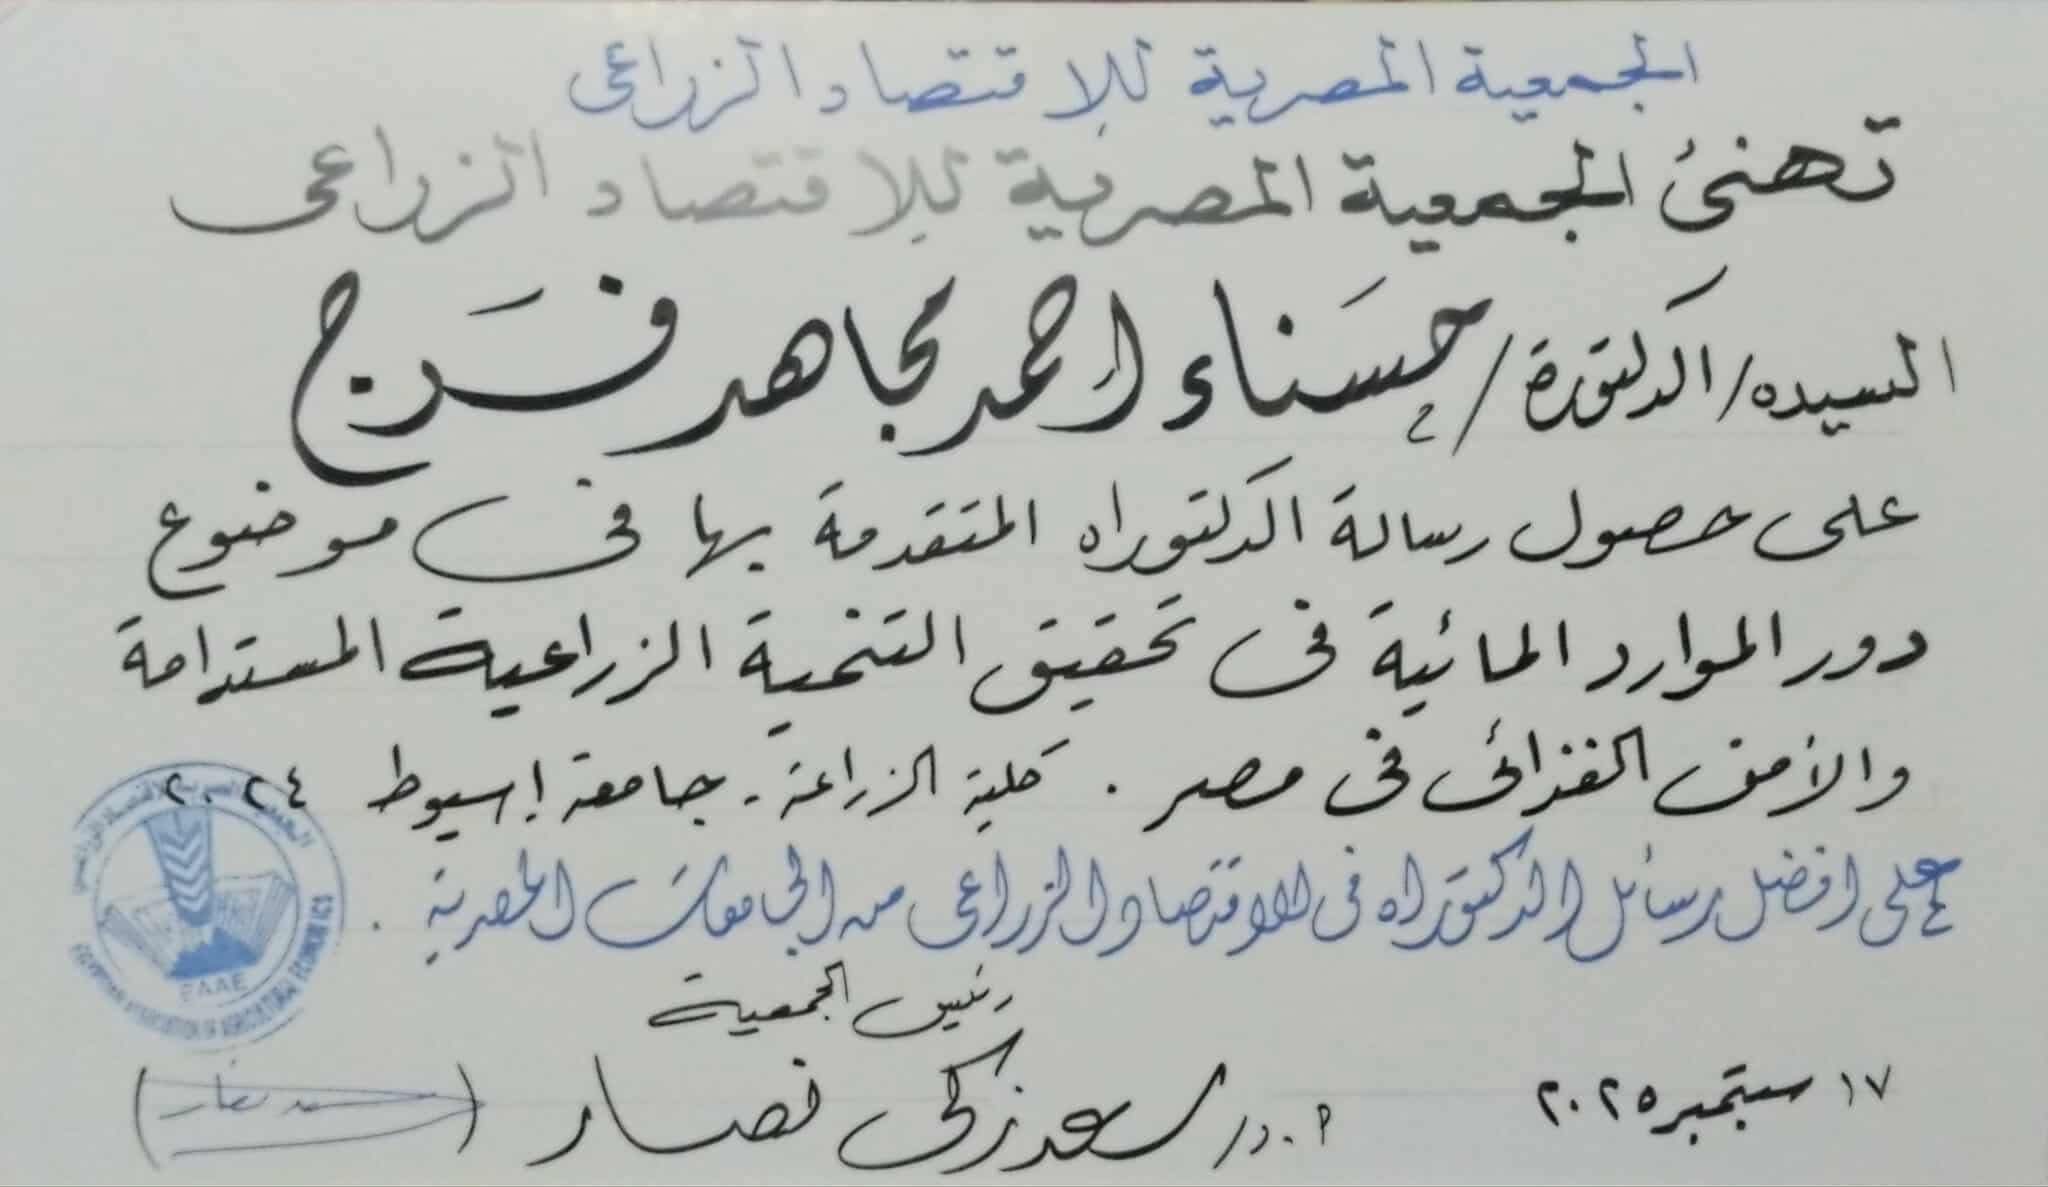 الجمعية المصرية للاقتصاد الزراعى
تهنئ الجمعية المصرية للاقتصاد الزراعى
السيده/ الدكتورة/ حسناء احمد مجاهد فرج
على حصول رسالة الدكتوراه المتقدمة بها فى موضوع
دور الموارد المائية فى تحقيق التنمية الزراعية المستدامة
والأمن الغذائى فى مصر . كلية الزراعة - جامعة اسيوط ٢٠٢٤
على افضل رسائل الدكتوراه فى الاقتصاد الزراعى من الجامعات المصرية .
رئيس الجمعية
١٧ سبتمبر ٢٠٢٥
أ.د/ سعد زكى نصار
(سعد نصار)
EAAE
EGYPTIAN ASSOCIATION OF AGRICULTURAL ECONOMICS